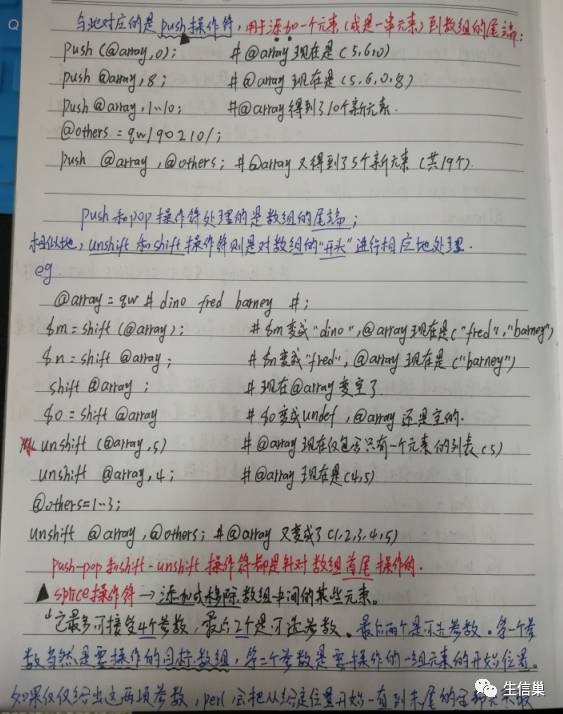 与此对应的是push操作符，用于添加一个元素(或是一串元素)到数组的尾端：
push (@array,0); #@array现在是(5,6,0)
push @array,8; #@array现在是(5,6,0,8)
push @array,1..10; #@array得到了10个新元素.
@others = qw/90210/;
push @array,@others; #@array又得到了5个新元素(共19个)
push和pop操作符处理的是数组的尾端；
相似地，unshift和shift操作符则是对数组的“开头”进行相应地处理.
eg
@array = qw # dino fred barney #;
$m = shift (@array); #$m变成"dino",@array现在是("fred","barney")
$n = shift @array; #$n变成"fred", @array现在是("barney")
shift @array; #现在@array变空了.
$o = shift @array #$o变成undef,@array还是空的.
unshift (@array,5) #@array现在仅包含只有一个元素的列表(5)
unshift @array,4; #@array现在是(4,5)
@others=1..3;
unshift @array,@others; #@array又变成了(1,2,3,4,5)
push-pop和shift-unshift操作符都是针对数组首尾操作的.
▲splice操作符→添加或移除数组中间的某些元素。
它最多可接受4个参数，最后2个是可选参数。最后两个是可选参数。第一个参
数当然是要操作的目标数组，第二个参数是要操作的一组元素的开始位置。
如果仅仅给出这两项参数，perl会把从给定位置开始一直到末尾的全部元素
生信巢